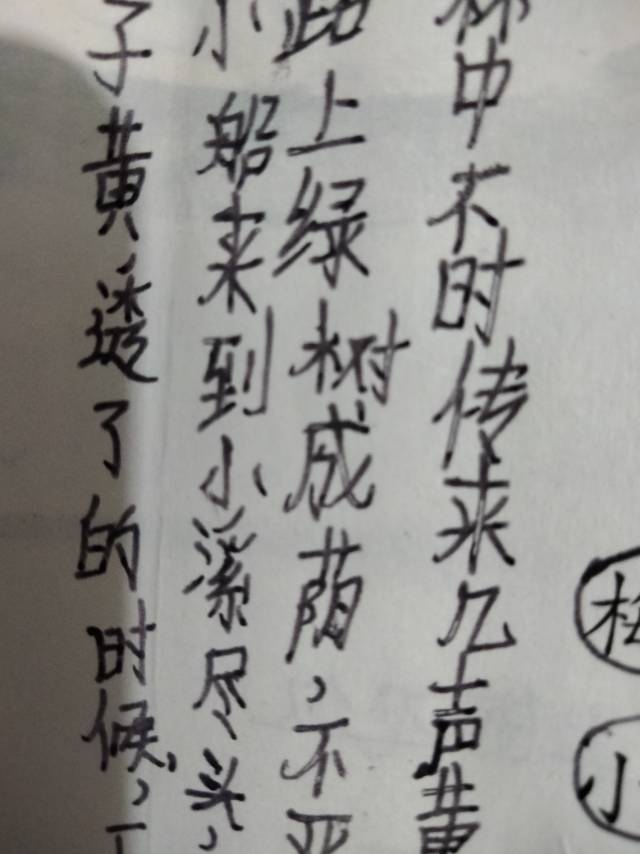 子黄透了的时候，
小船来到小溪尽头，
路上绿树成荫，不亚
林中不时传来几声黄
小